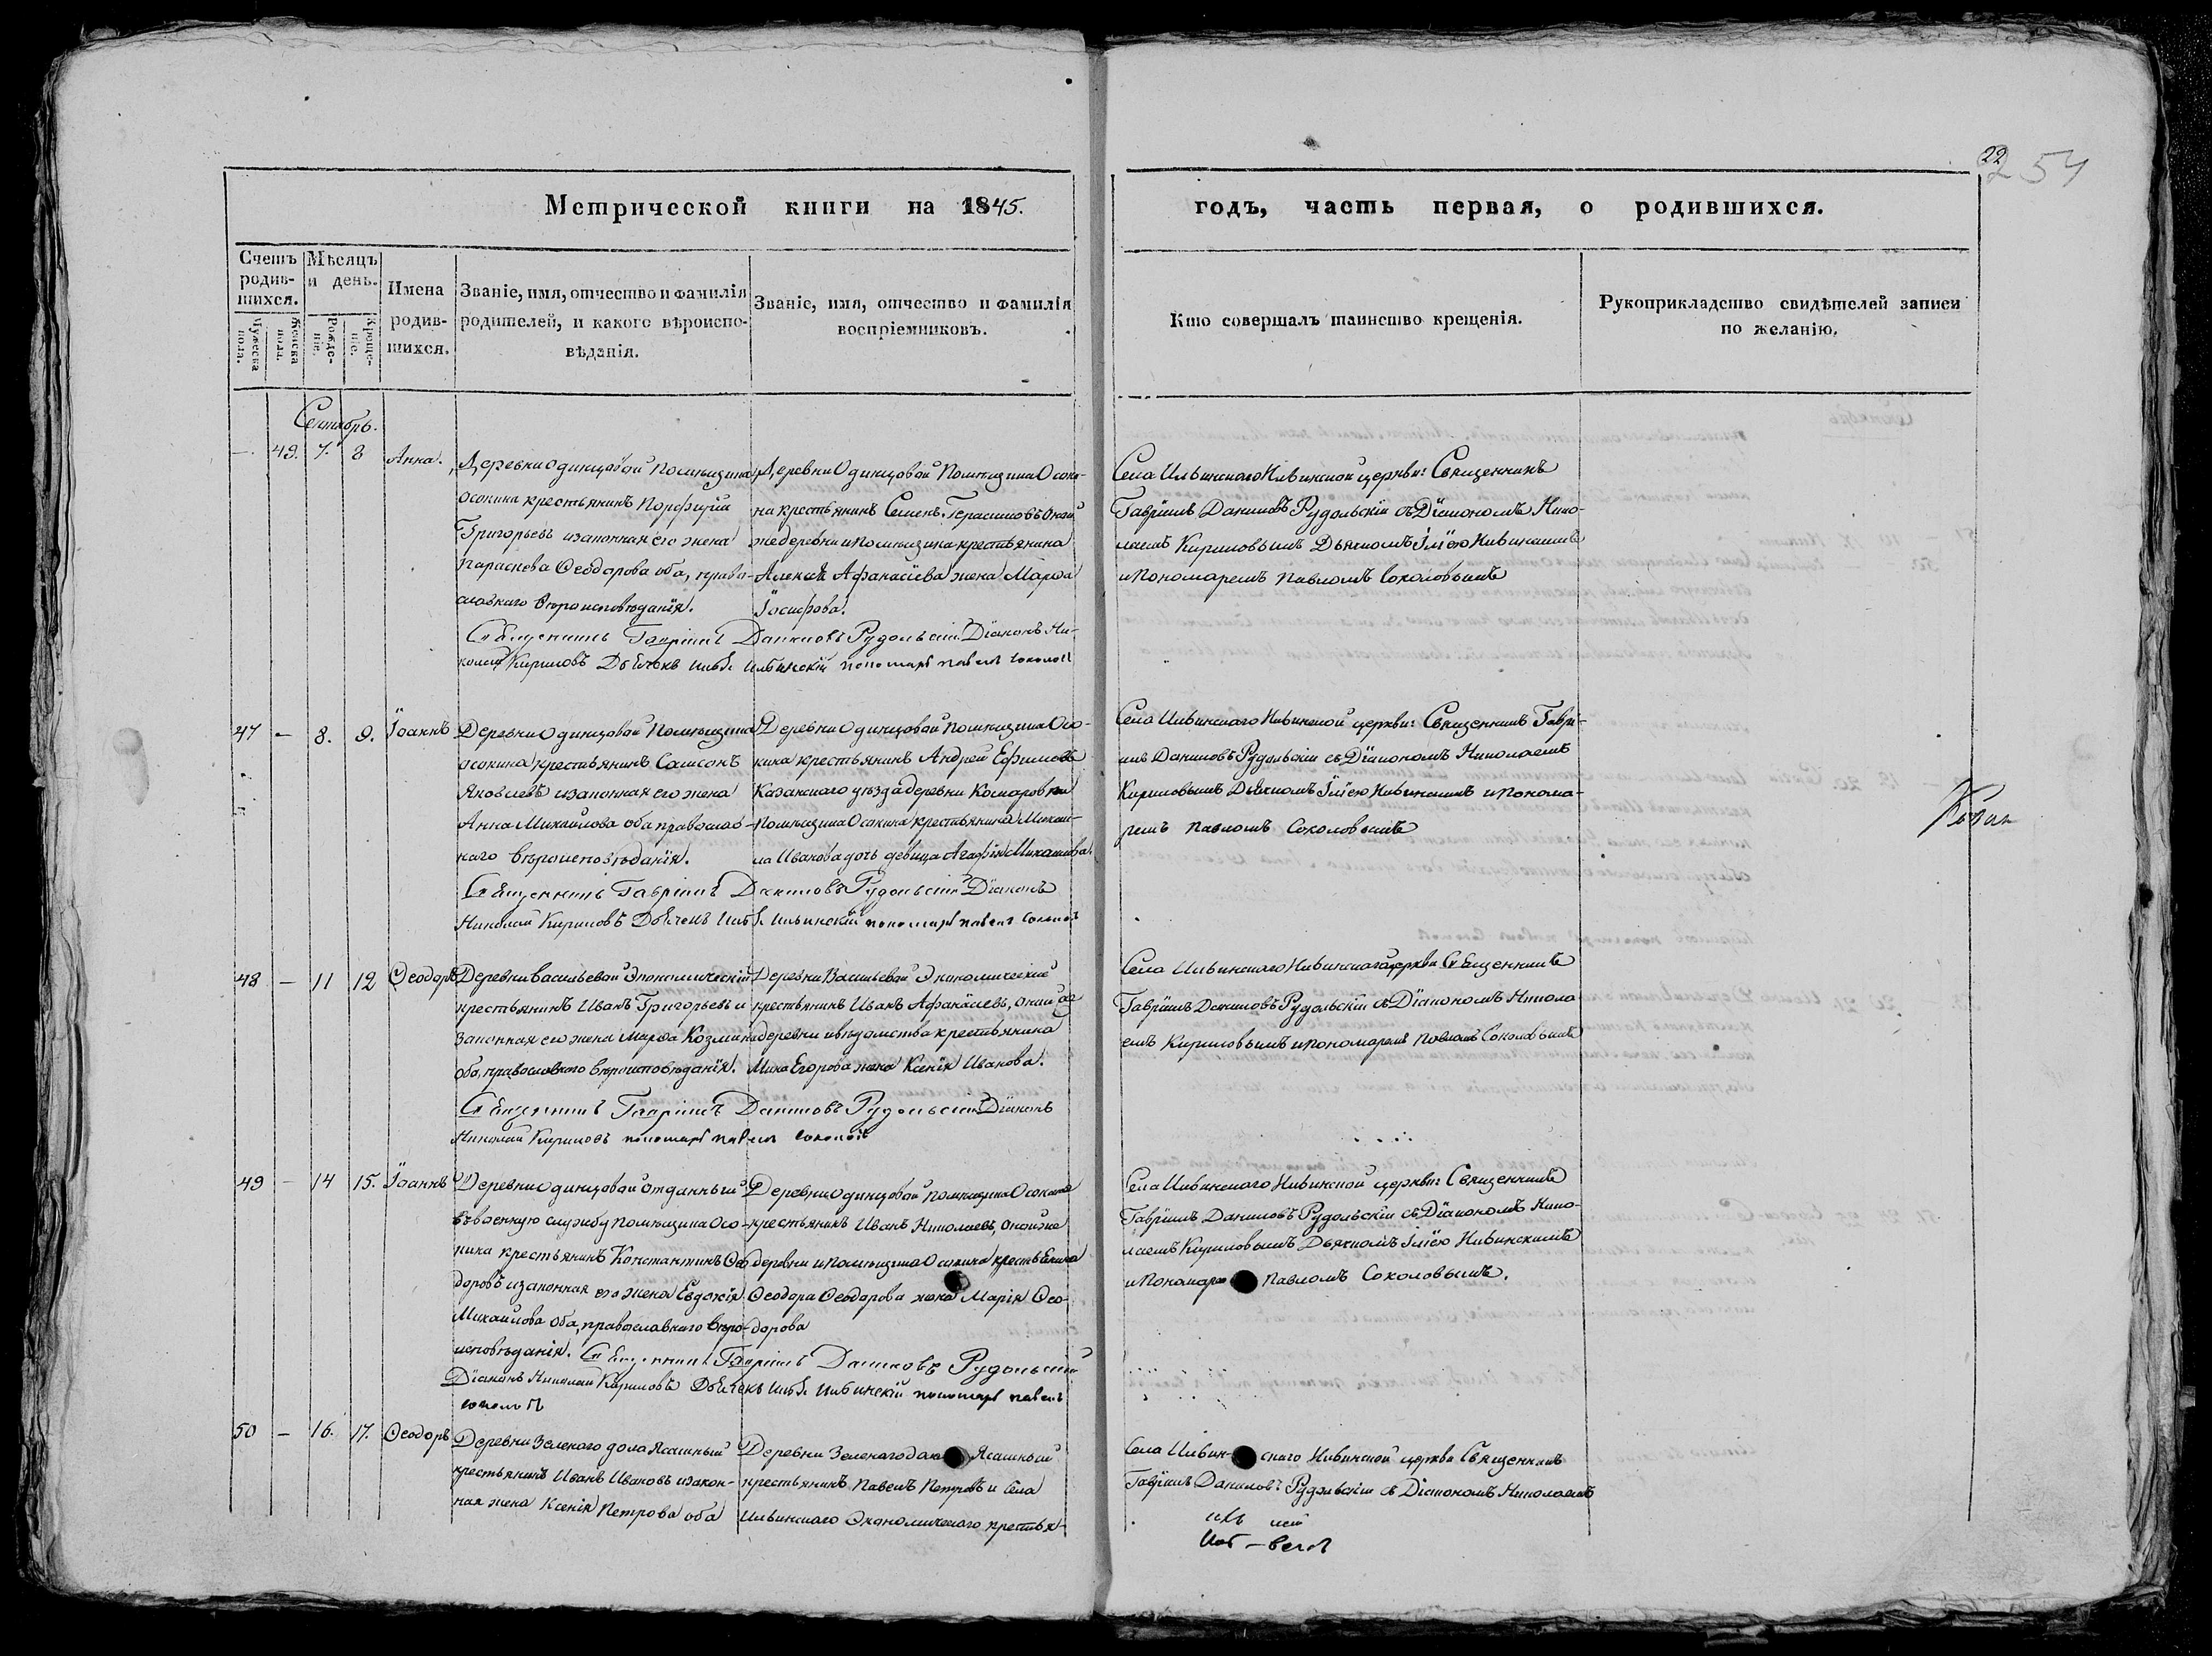 22
254
Метрической книги на 1845.
годъ, часть первая, о родившихся.
Счетъ родившихся.
Мужеска пола.
Женска пола.
Мѣсяцъ и день.
Рожденіе.
Крещеніе.
Имена родившихся.
Званіе, имя, отчество и фамилія
родителей, и какого вѣроиспо-
вѣданія.
Званіе, имя, отчество и фамилія
воспріемниковъ.
Кто совершалъ таинство крещенія.
Рукоприкладство свидѣтелей записи
по желанію.
Сентябрь.
— 49. 7. 8 Анна.
Деревни Одинцовой помѣщика
Осокина крестьянинъ Порфирій
Григорьевъ и законная его жена
Параскева Ѳеодорова оба, право-
славнаго вѣроисповѣданія.
Деревни Одинцовой помѣщика Осоки-
на крестьянинъ Семенъ Герасимовъ оной
же деревни и помѣщика крестьянина
Алексѣя Афанасіева жена Марѳа
Іосифова.
Священникъ Гавріилъ Даниловъ Рудольскій Діаконъ Ни-
колай Кириловъ Дьячекъ Ильинскій пономарь Павелъ Соколовъ
Села Ильинскаго Ильинской церкви: Священникъ
Гавріилъ Даниловъ Рудольскій съ Діакономъ Нико-
лаемъ Кириловымъ Дьячкомъ Іліею Ильинскимъ
и Пономаремъ Павломъ Соколовымъ
47 — 8. 9. Іоаннъ
Деревни Одинцовой помѣщика
Осокина крестьянинъ Самсонъ
Яковлевъ и законная его жена
Анна Михайлова оба православ-
наго вѣроисповѣданія.
Деревни Одинцовой помѣщика Осо-
кина крестьянинъ Андрей Ефимовъ
Казанскаго уѣзда деревни Комаровки
помѣщика Осокина крестьянина Михаи-
ла Иванова дочь девица Агафія Михайлова.
Священникъ Гавріилъ Даниловъ Рудольскій Діаконъ
Николай Кириловъ Дьячекъ Ильинскій пономарь Павелъ Соколовъ
Села Ильинскаго Ильинской церкви: Священникъ Гаврі-
илъ Даниловъ Рудольскій съ Діакономъ Николаемъ
Кириловымъ Дьячкомъ Іліею Ильинскимъ и Понома-
ремъ Павломъ Соколовымъ
48 — 11 12 Ѳеодоръ
Деревни Васильевой Экономическій
крестьянинъ Иванъ Григорьевъ и
законная его жена Марѳа Козмина
оба, православнаго вѣроисповѣданія.
Деревни Васильевой Экономическій
крестьянинъ Иванъ Афанасіевъ, оной же
деревни и вѣдомства крестьянина
Егорова жена Ксенія Иванова.
Священникъ Гавріилъ Даниловъ Рудольскій Діаконъ
Николай Кириловъ пономарь Павелъ Соколовъ
Села Ильинскаго Ильинской церкви Священникъ
Гавріилъ Даниловъ Рудольскій съ Діакономъ Никола-
емъ Кириловымъ и пономаремъ Павломъ Соколовымъ
49 — 14 15. Іоаннъ
Деревни Одинцовой отданный
въ военную службу помѣщика Осо-
кина крестьянинъ Константинъ Ѳео-
доровъ и законная его жена Евдокія
Михайлова оба, православнаго вѣро-
исповѣданія.
Деревни Одинцовой помѣщика Осокина
крестьянинъ Иванъ Николаевъ, оной же
деревни и помѣщика Осокина крестьянина
Ѳеодора Ѳеодорова жена Марія Ѳео-
дорова
Священникъ Гавріилъ Даниловъ Рудольскій
Діаконъ Николай Кириловъ Дьячекъ Ильинскій пономарь Павелъ
Соколовъ
Села Ильинскаго Ильинской церкви: Священникъ
Гавріилъ Даниловъ Рудольскій съ Діакономъ Нико-
лаемъ Кириловымъ Дьячкомъ Іліею Ильинскимъ
и Пономаре Павломъ Соколовымъ.
50 — 16. 17. Ѳеодоръ
Деревни Зеленаго дола Ясашный
крестьянинъ Иванъ Ивановъ и закон-
ная жена Ксенія Петрова оба
Деревни Зеленаго дола Ясашный
крестьянинъ Павелъ Петровъ и Села
Ильинскаго Экономическаго крестья-
Села Ильинскаго Ильинской церкви Священникъ
Гавріилъ Даниловъ Рудольскій съ Діакономъ Николаемъ